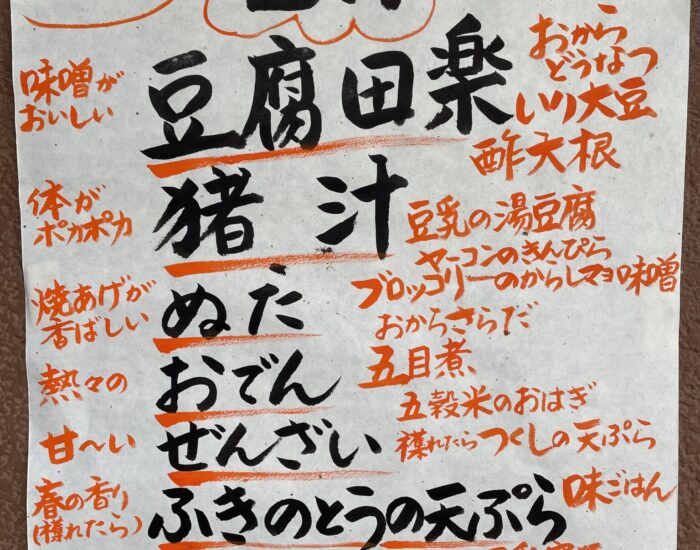 味噌が
おいしい
豆腐田楽
おから
どうなつ
いり大豆
酢大根
体が
ポカポカ
猪汁
豆乳の湯豆腐
ヤーコンのきんぴら
ブロッコリーのからしマヨ味噌
焼あげが
香ばしい
ぬた
おからさらだ
熱々の
おでん
五目煮
五穀米のおはぎ
甘〜い
ぜんざい
穫れたらつくしの天ぷら
春の香り
(穫れたら)
ふきのとうの天ぷら
味ごはん